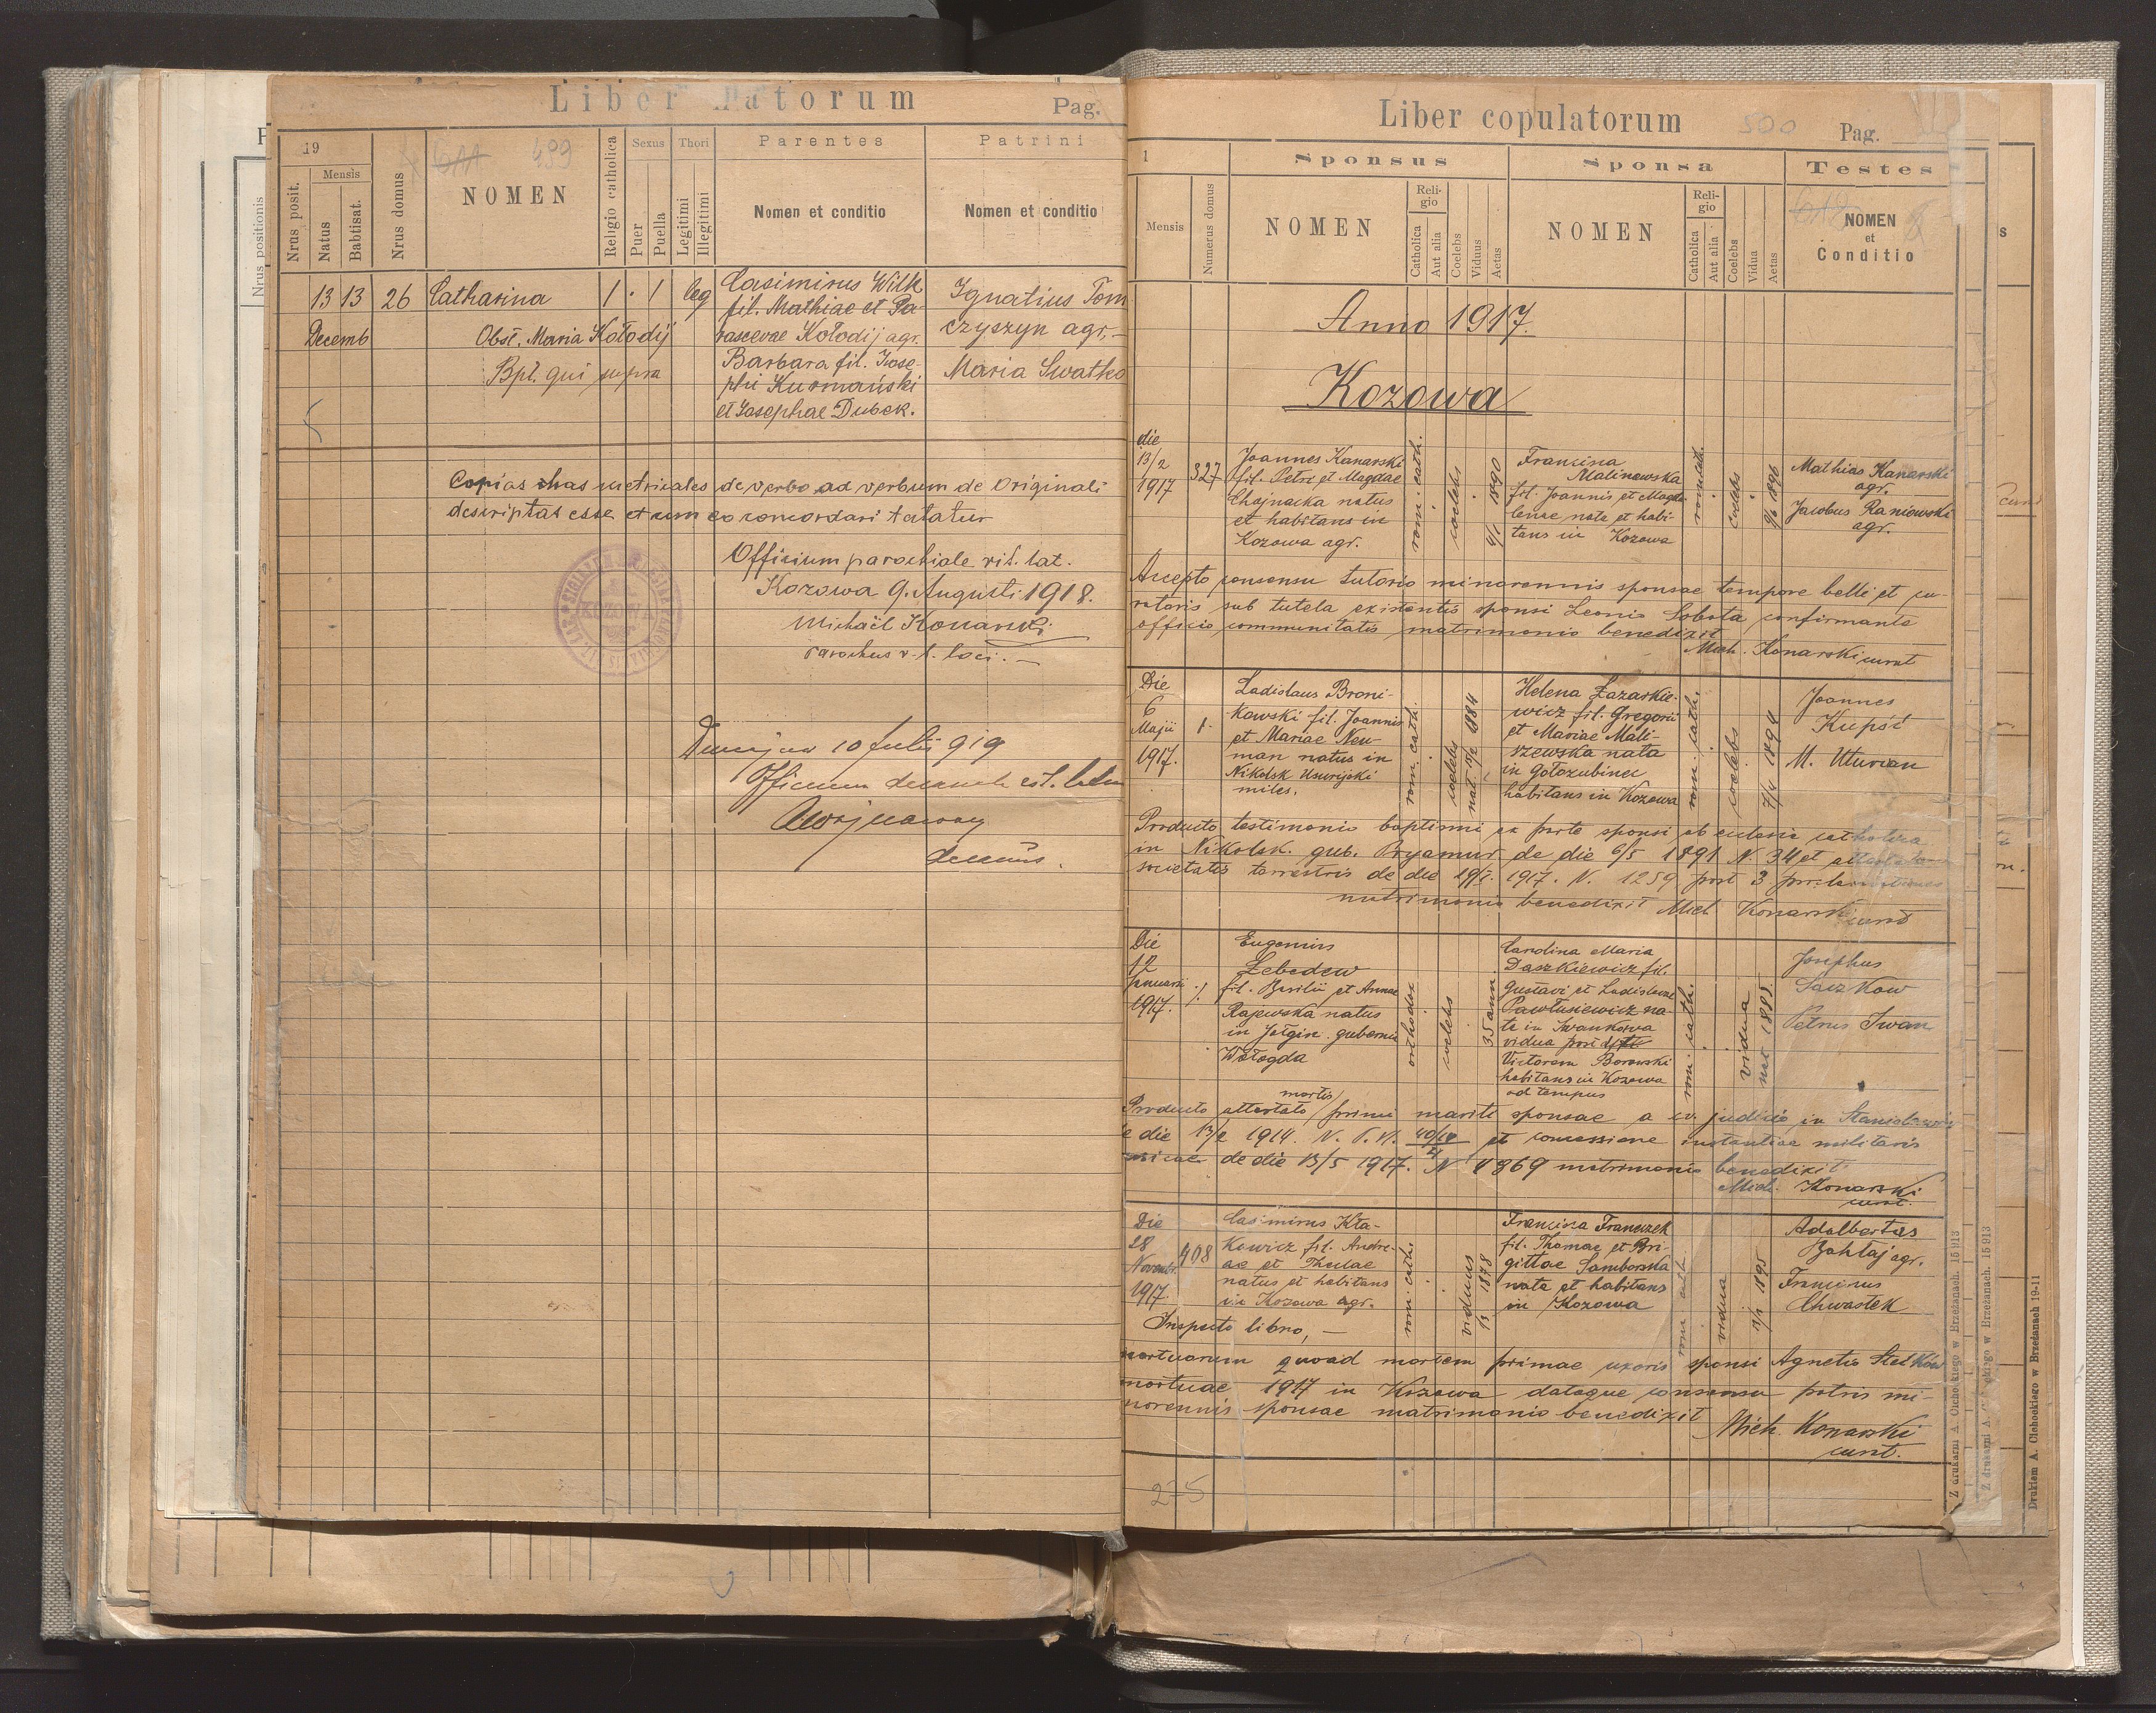 Liber Natorum
Pag.
19
Mensis
Nrus posit.
Natus
Babtisat.
Nrus domus
499
NOMEN
Religio catholica
Sexus
Puer
Puella
Thori
Legitimi
Illegitimi
Parentes
Nomen et conditio
Patrini
Nomen et conditio
Nrus positionis
13 13 26 Catharina 1 · 1 leg
Decemb
Obst. Maria Kołodij
Bpt. qui supra
Casimirus Wilk
fil. Mathiae et Pa-
rascevae Kołodij agr.
Barbara fil. Jose-
phi Kurmański
et Josephae Dubek.
Ignatius Tom
czyszyn agr.,
Maria Swatko
Copias has metricales de verbo ad verbum de originali
descriptas esse et cum eo concordari testatur
Officium parochiale rit. lat.
Kozowa 9. Augusti 1918.
Michaël Konarski
Parochus r. l. loci.
10 Julii 919
Officium
Liber copulatorum
500
Pag.
1
Mensis
Numerus domus
Sponsus
NOMEN
Religio
Catholica
Aut alia
Coelebs
Viduus
Aetas
Sponsa
NOMEN
Religio
Catholica
Aut alia
Coelebs
Vidua
Aetas
Testes
NOMEN
et
Conditio
Anno 1917.
Kozowa
die
13/2
1917
327
Joannes Kanarski
fil. Petri et Magdae
Chajnacka natus
et habitans in
Kozowa agr.
rom. cath.
coelebs
4/1 1890
Francisca
Malinowska
fil. Joannis et Magda-
lenae nata et habi-
tans in Kozowa
rom. cath.
coelebs
9/6 1896
Mathias Kanarski
agr.
Jacobus Kaniewski
agr.
Accepto consensu tutorio minorennis sponsae tempore belli et cu-
ratoris sub tutela existentis sponsi Leonis Sobota confirmante
officio communitatis matrimonio benedixit
Mich. Konarski curat
Die
6
Maji
1917.
1.
Ladislaus Broni-
kowski fil. Joannis
et Mariae Neu-
man natus in
Nikolsk Usurijski
miles.
rom. cath.
coelebs
1884
Helena Łazarkie-
wicz fil. Gregorii
et Mariae Mali-
szewska nata
in Gołozubinci
habitans in Kozowa
rom. cath.
coelebs
7/4 1894
Joannes
Kupść
M. Uturian
Producto testimonio baptismi ex parte sponsi ab ecclesia catholica
in Nikolsk. gub. Pryamur de die 6/5 1891 N. 34 et
societatis terrestris de die 19/I. 1917. N. 1259 post 3
matrimonio benedixit Mich Konarski curat
Die
12
Januarii
1917.
Eugenius
Lebedew
fil. Basilii et Annae
Rajewska natus
in Jołgin. gubernia
Wołogda
orthodox
coelebs
35 ann
Carolina Maria
Daszkiewicz fil.
Gustavi et Ladislavae
Pawłusiewicz na-
ta in Iwankowa
vidua post
Victorem Borowski
habitans in Kozowa
ad tempus
rom. cath.
vidua
nat 1885.
Josephus
Saczkow
Petrus Iwan
Producto attestato mortis primi mariti sponsae a cv. judicio in Stanislawow
de die 13/2 1914. N. et concessione instantiae militaris
de die 13/5 1917. N 4869 matrimonio benedixit
Mich. Konarski
curat.
Die
28
Novembr.
1917.
408
Casimirus Kła-
kowicz fil. Andre-
ae et Theclae
natus et habitans
in Kozowa agr.
rom. cath.
viduus
1878
Francisca Franczek
fil. Thomae et Bri-
gittae Samborska
nata et habitans
in Kozowa
vidua
1895
Adalbertus
Bahłaj agr.
Franciscus
Chwastek
Inspecto libro,
mortuorum quoad mortem primae uxoris sponsi Agnetis Stecków
mortuae 1917 in Kozowa datoque consensu patris mi-
norennis sponsae matrimonio benedixit
Mich. Konarski
curat.
275
Z drukarni A. Cichockiego w Brzeżanach. 15 913
Z drukarni A. Cichockiego w Brzeżanach. 15 913
Drukiem A. Cichockiego w Brzeżanach 19-11